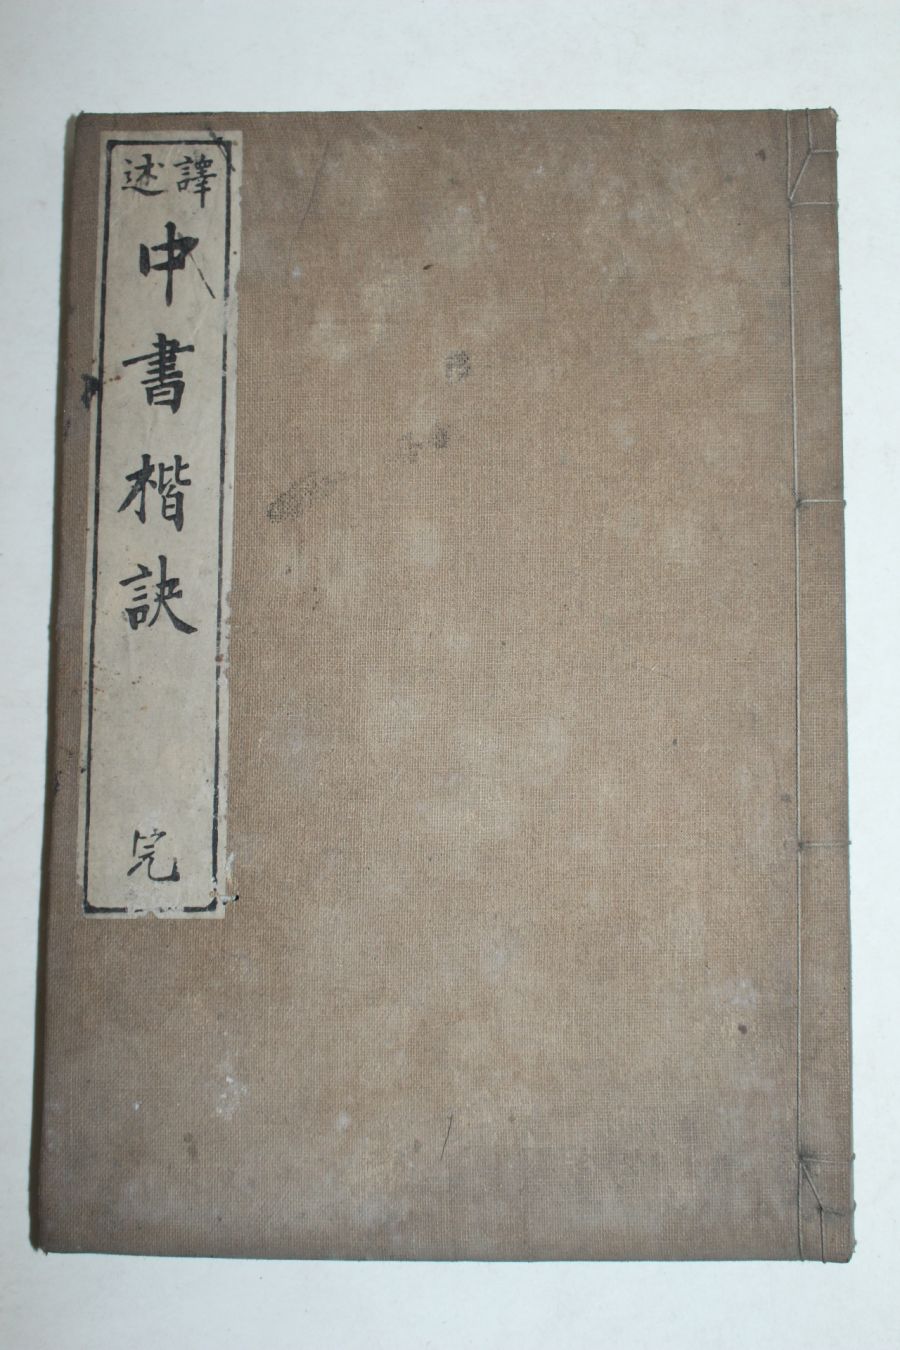 譯述
中書楷訣
完